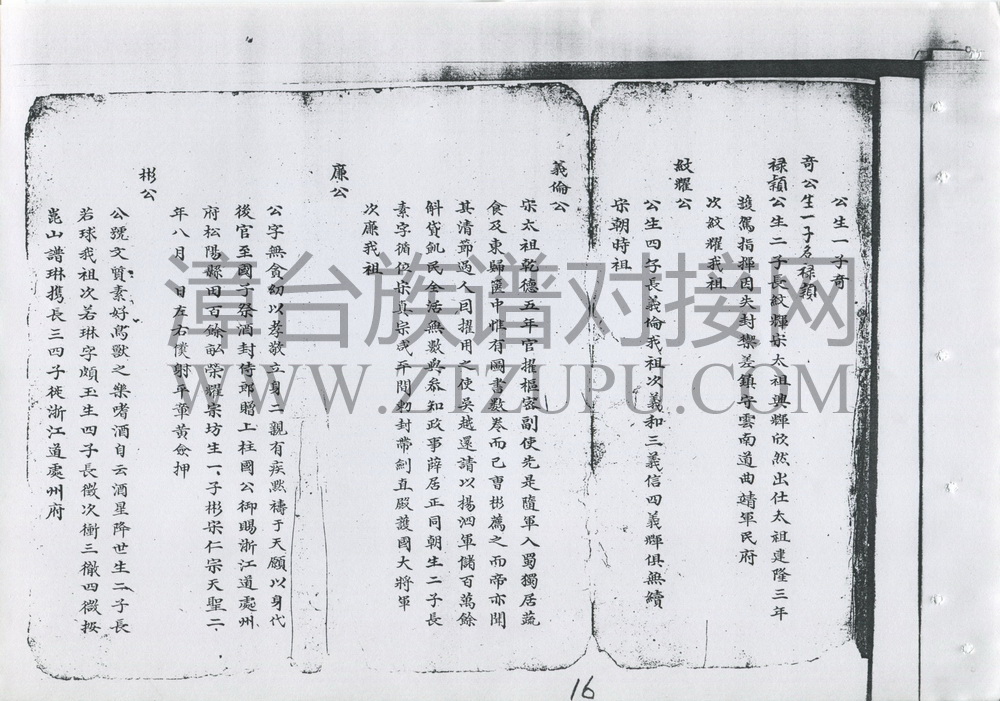 公生一子奇
奇公生一子名禄穎
禄穎公生二子長紋輝宋太祖興輝欣然出仕太祖建隆三年
護駕指揮因失封禦差鎮守雲南道曲靖軍民府
次紋耀我祖
紋耀公
公生四子長義倫我祖次義和三義信四義輝俱無續
宋朝時祖
義倫公
宋太祖乾德五年官擢樞密副使先是隨軍入蜀獨居蔬
食及東歸篋中惟有圖書数卷而已曹彬薦之而帝亦聞
其清節過人因擢用之使吳越還請以揚泗軍儲百萬餘
斛貸飢民全活無數與參知政事薛居正同朝生二子長
素字循位宋真宗弍年間勅封帶劍直殿護國大將軍
次廉我祖
廉公
公字無貪幼以孝敬立身二親有疾黙禱于天願以身代
後官至國子祭酒封侍郎贈上柱國公御賜浙江道處州
府松陽縣田百餘畝榮耀宗坊生一子彬宋仁宗天聖二
年八月 日左右僕射平章黃僉押
彬公
公號文質素好鳥獸之樂嗜酒自云酒星降世生二子長
若球我祖次若琳字頗玉生四子長徵次衝三徹四微按
崑山譜琳携長三四子徙浙江道處州府
漳台族谱对接网
WWW.ZTZUPU.COM
16